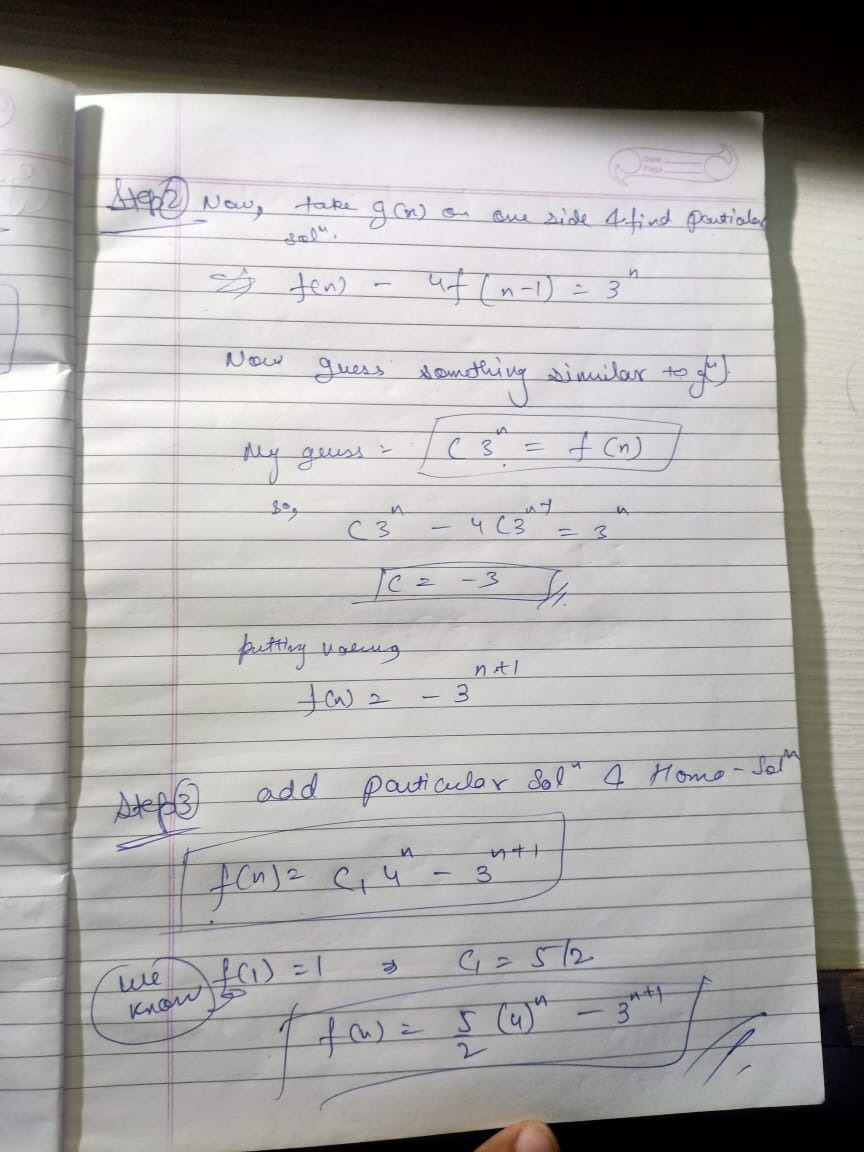 Date
Page
Step② Now, take g(n) on one side & find particular
solⁿ.
⇒ f(n) - 4f(n-1) = 3ⁿ
Now guess something similar to g(n).
My geuss = C3ⁿ = f(n)
so,
C3ⁿ - 4C3ⁿ⁻¹ = 3ⁿ
C = -3
putting
f(n) = - 3ⁿ⁺¹
Step③ add particular Solⁿ & Homo-Solⁿ
f(n) = C₁4ⁿ - 3ⁿ⁺¹
We know f(1) = 1 ⇒ C₁ = 5/2
f(n) = 5/2 (4)ⁿ - 3ⁿ⁺¹